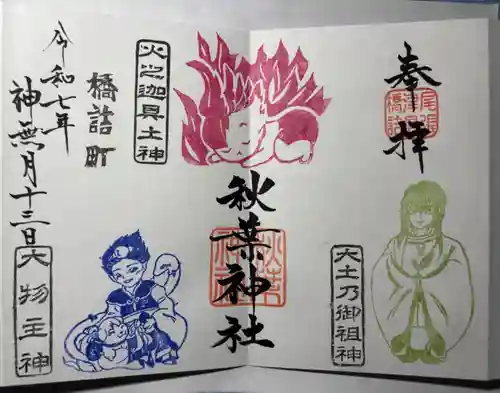 奉拝
尾張
津島
橋詰
大土乃御祖神
秋葉神社
火之迦具土神
橋詰町
令和七年
神無月十三日
大物主神